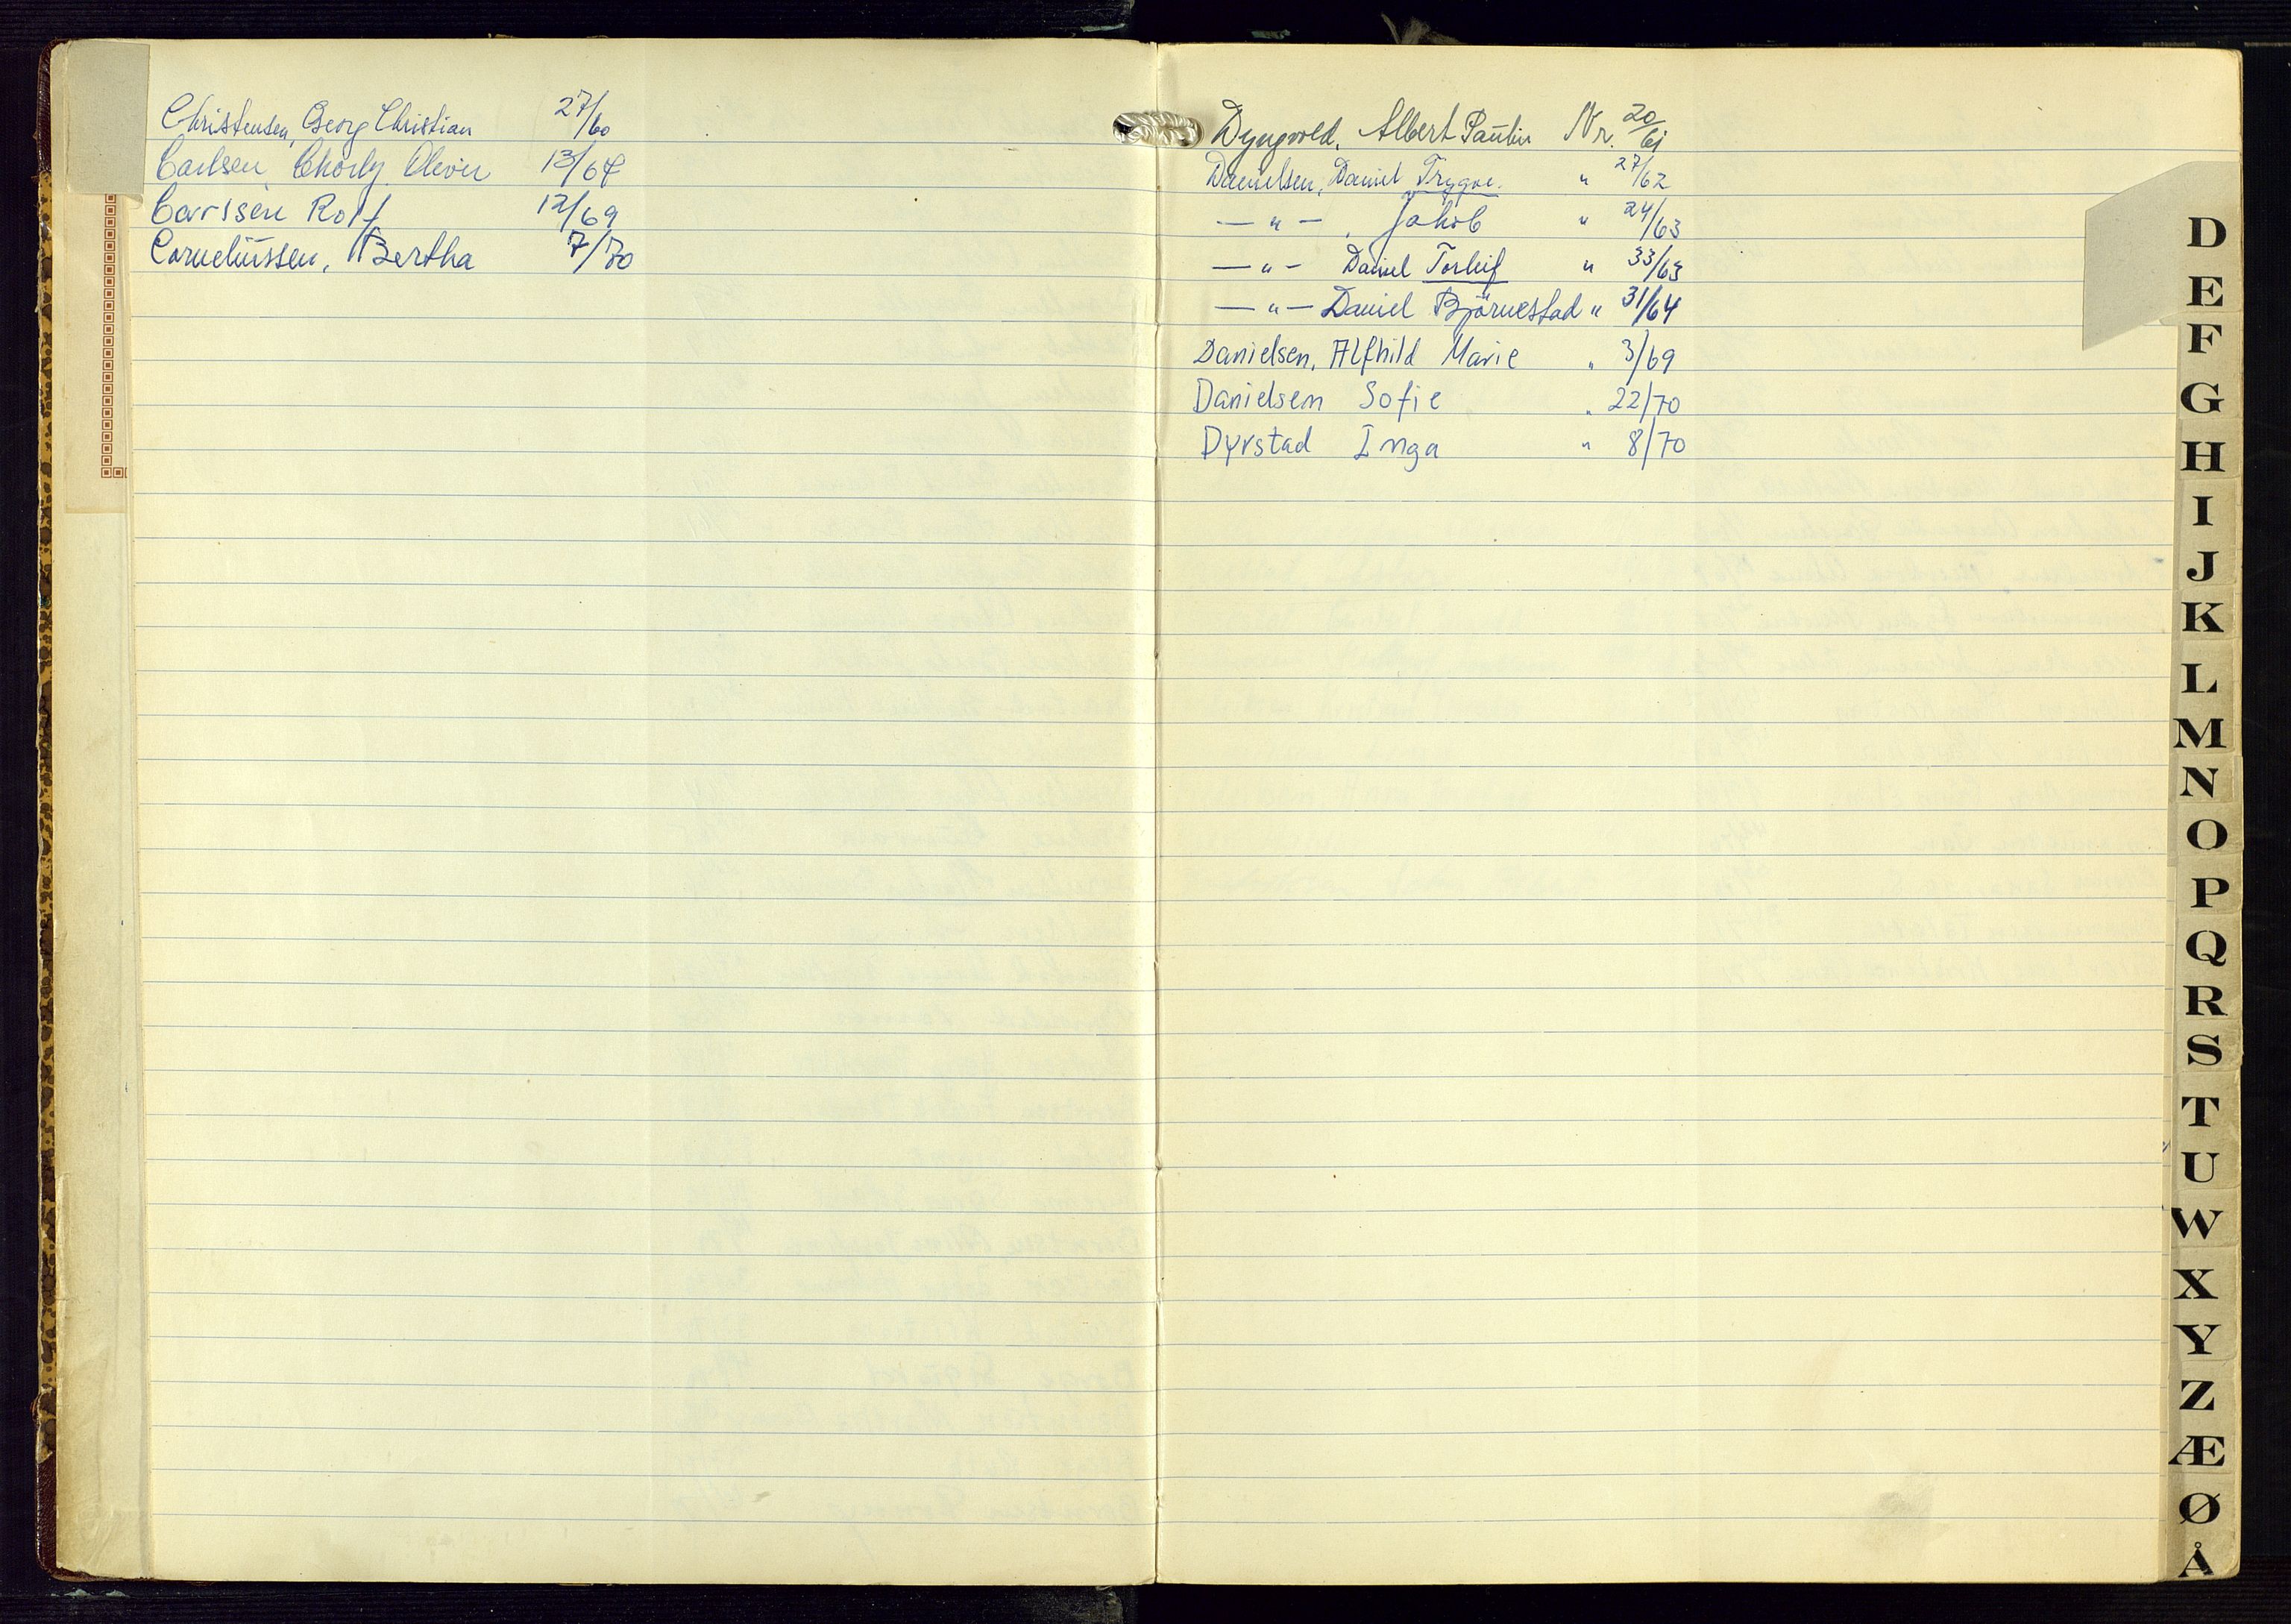 Christensen, Georg Christian 27/60
Carlsen, Charly Olever 13/64
Carlsen Rolf 12/69
Corneliussen, Bertha 7/70
Dyngvold, Albert Paulin Nr. 20/61
Danielsen, Daniel Trygve. " 27/62
— " — , Jakob " 24/63
— " — Daniel Torleif " 33/63
— " — Daniel Bjørnestad " 31/64
Danielsen, Alfhild Marie " 3/69
Danielsen Sofie " 22/70
Dyrstad Inga " 8/70
D
E
F
G
H
I
J
K
L
M
N
O
P
Q
R
S
T
U
W
X
Y
Z
Æ
Ø
Å